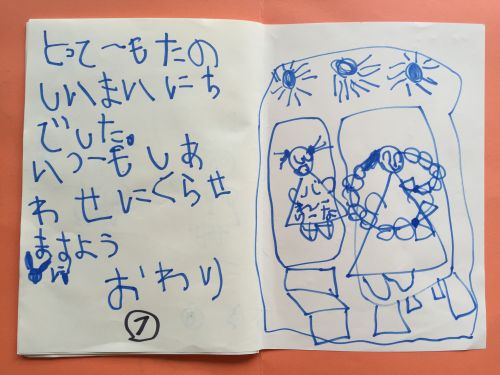 とって〜もたの
しいまいにち
でした。
いつ〜もしあ
わせにくらせ
ますよう
に
おわり
7